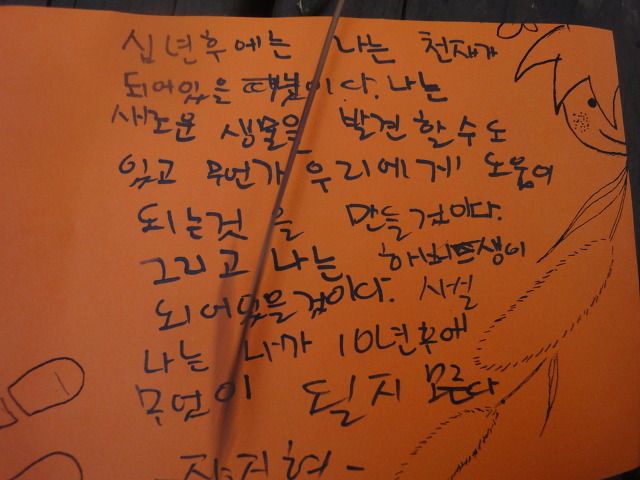 십년후에는 나는 천재가
되어있을 이다. 나는
새로운 생물을 발견할수도
있고 무언가 우리에게 도움이
되는것을 만들것이다.
그리고 나는 생이
되어있을것이다. 사실
나는 내가 10년후에
무엇이 될지 모른다